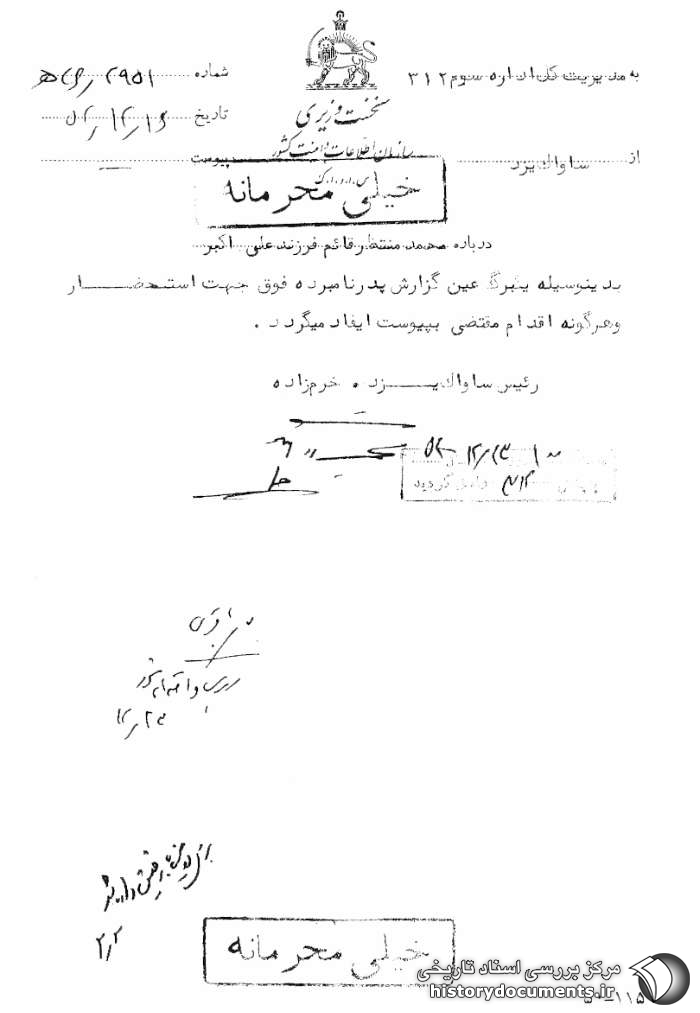 به مدیریت کل اداره سوم ۳۱۲
شماره ۲۹۵۱
نخست وزیری
تاریخ ۵۲/۱۲/۱۶
سازمان اطلاعات و امنیت کشور
از ساواک یزد
پیوست
س.ا.و.ا.ک
خیلی محرمانه
درباره محمد منتظر قائم فرزند علی اکبر
بدینوسیله یکبرگ عین گزارش پدر نامبرده فوق جهت استحضار
و هرگونه اقدام مقتضی بپیوست ایفاد میگردد .
رئیس ساواک یزد . خرم زاده
۵۲ـ ۱۲/۲۳
۳۱۲ واصل گردید
بررسی و اقدام شود
۱۲/۲۳
۲/۲
خیلی محرمانه
مرکز بررسی اسناد تاریخی
historydocuments.ir
۵۰ـ۱۱۵